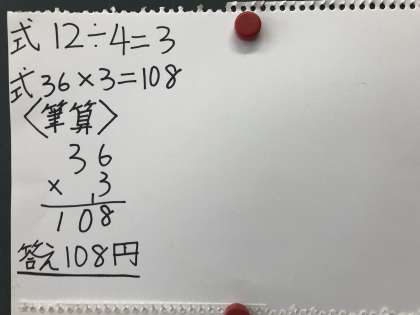 式 12÷4=3
式 36×3=108
〈筆算〉
36
× 3
108
答え108円